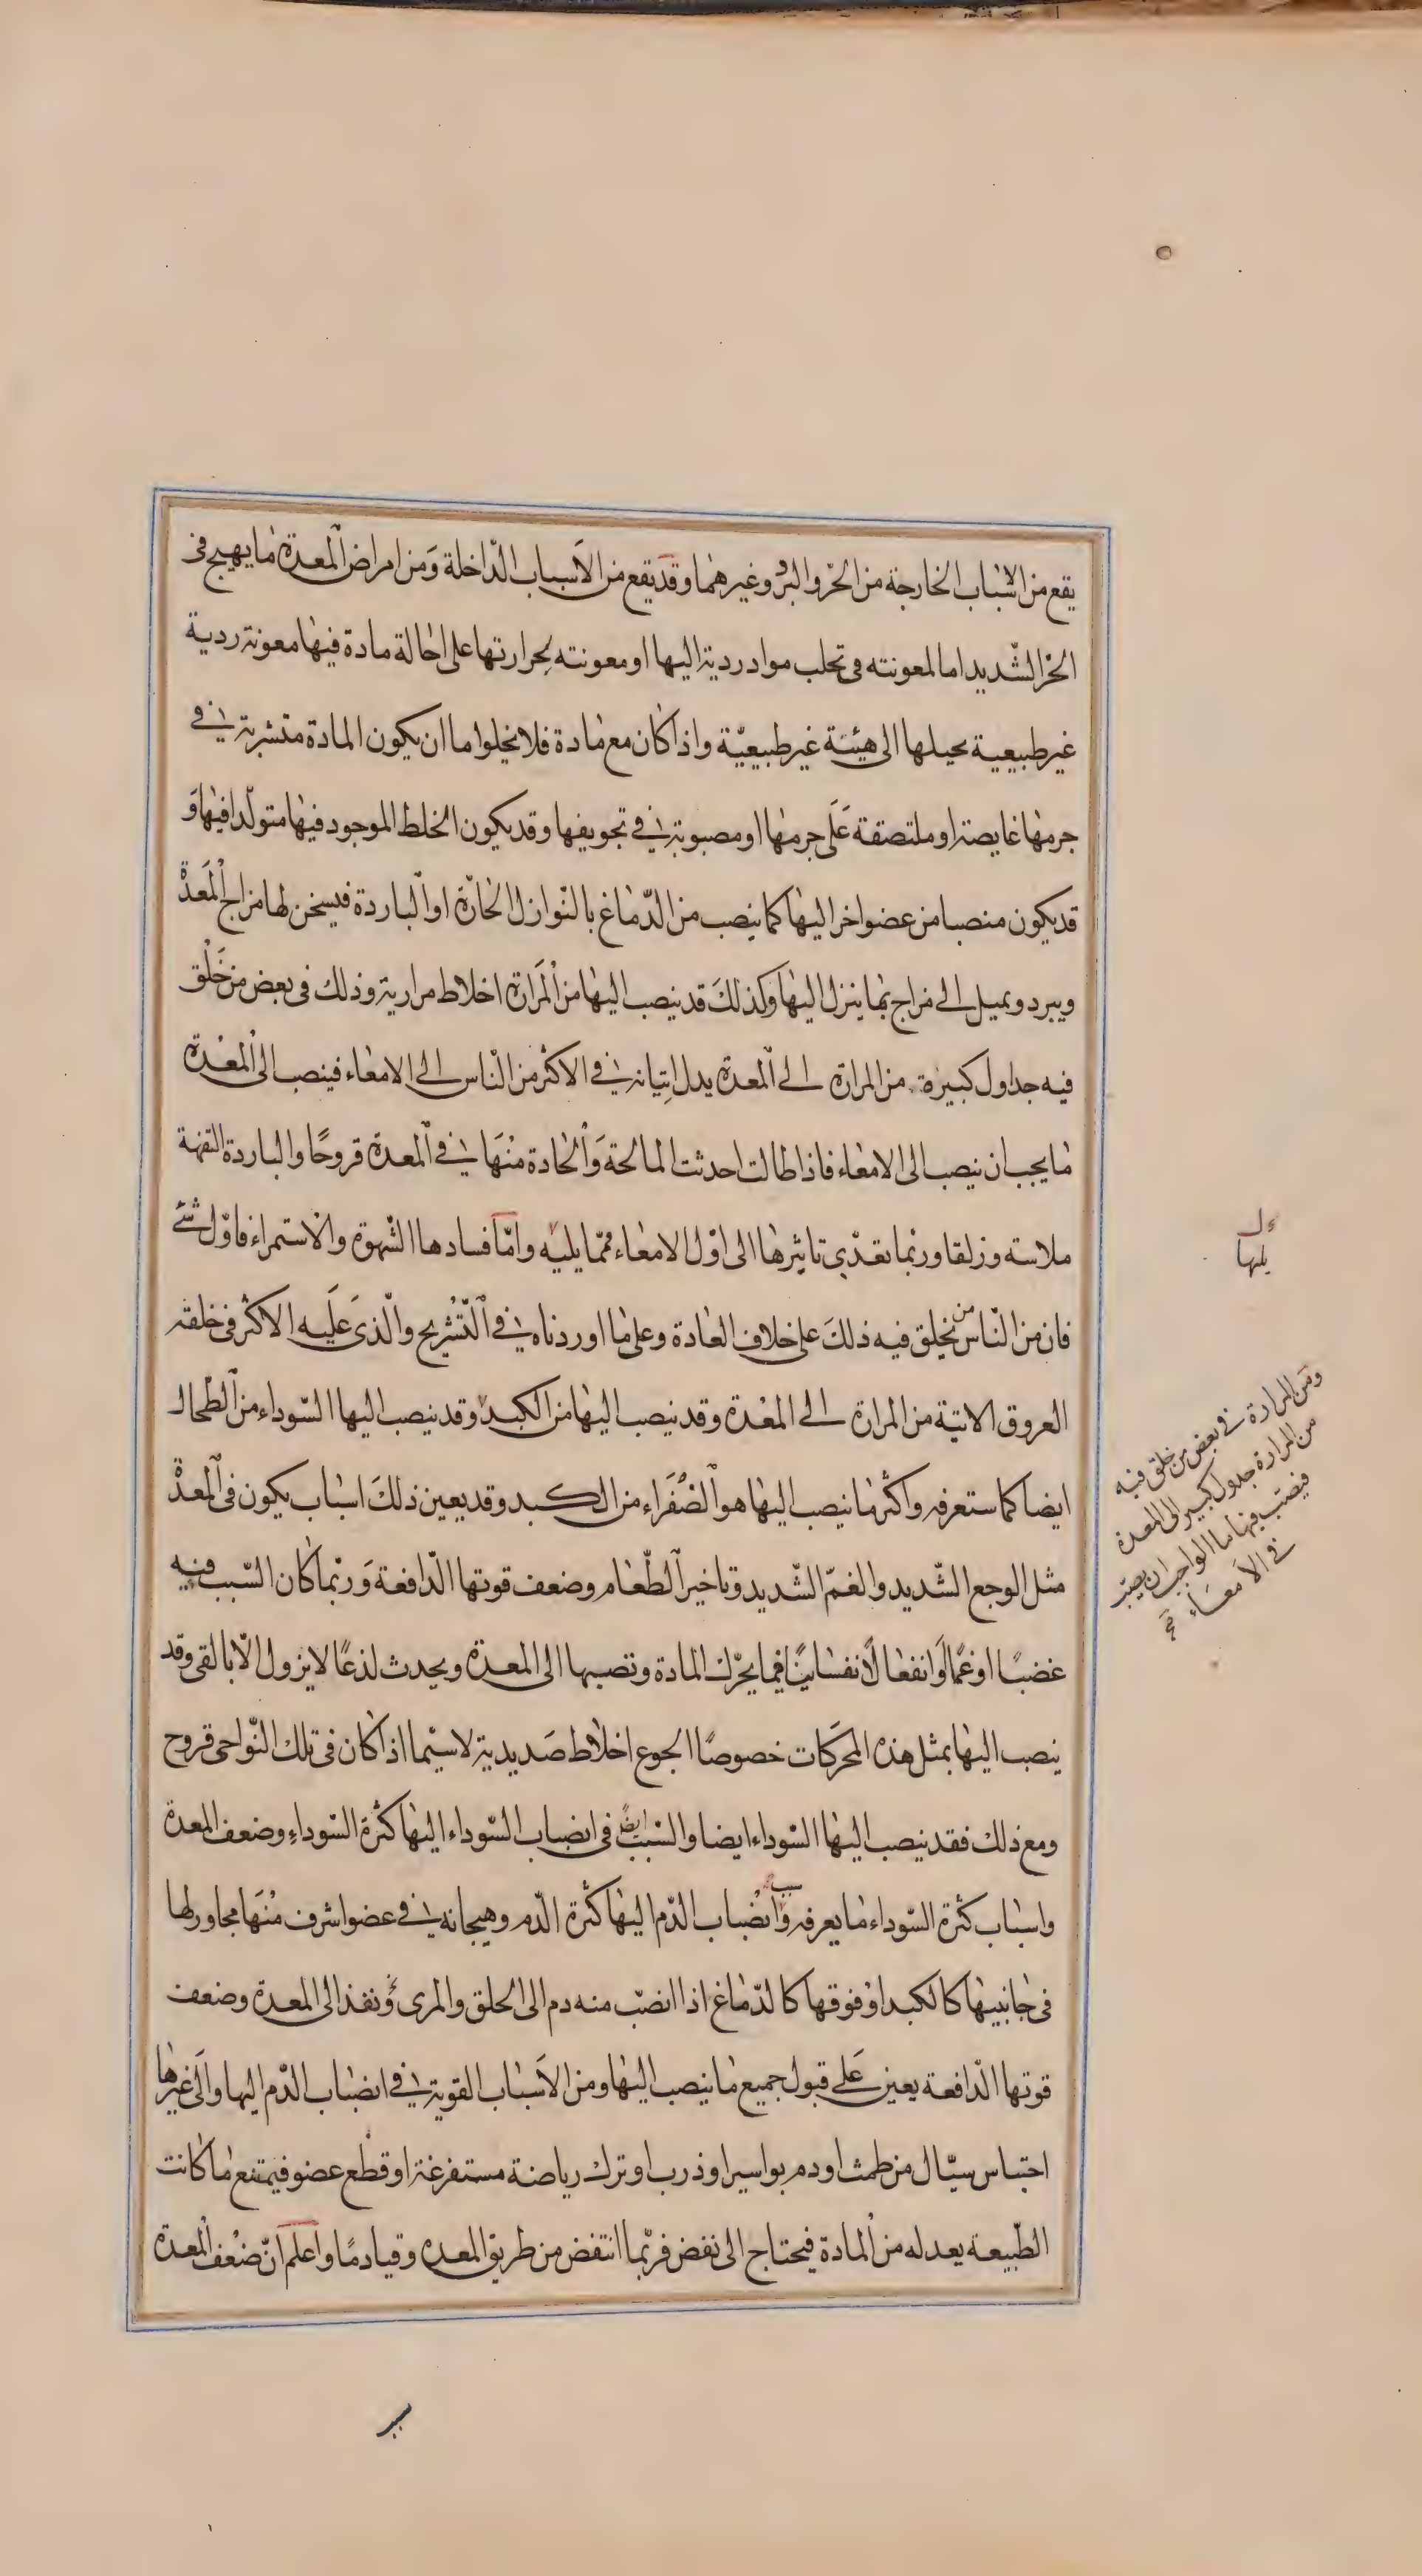 يقع من الاسباب الخارجة من الحرّ والبرد وغيرهما وقد يقع من الاسباب الدّاخلة ومن امراض المعدة ما يهيج فى
الحرّ الشّديد اما لمعونته فى تحلب مواد ردية اليها او معونته بحرارتها على احالة مادة فيها معونة ردية
غير طبيعية يحيلها الى هيئة غير طبيعيّة واذا كان مع مادة فلا يخلوا ما ان يكون المادة متشربة فى
جرمها غايصة او ملتصقة على جرمها او مصبوبة فى تجويفها وقد يكون الخلط الموجود فيها متولّدا فيها و
قد يكون منصبا من عضو اخر اليها كما ينصب من الدّماغ بالنّوازل الحارّة او الباردة فيسخن لها مزاج المعدة
ويبرد ويميل الى مزاج بما ينزل اليها وكذلك قد ينصب اليها من المرارة اخلاط مرارية وذلك فى بعض من خلق
فيه جداول كبيرة من المرارة الى المعدة يدل اتيانه فى الاكثر من النّاس الى الامعاء فينصب الى المعدة
ما يجب ان ينصب الى الامعاء فاذا طالت احدثت المالحة والحادة منها فى المعدة قروحًا والباردة التفهة
ملاسته وزلقا وربّما تعدّى تاثيرها الى اوّل الامعاء ممّا يليه وامّا فسادها الشّهوة والاستمراء فاوّل شئ
فان من النّاس من يخلق فيه ذلك على خلاف العادة وعلى ما اوردناه فى التّشريح والّذى عليه الاكثر فى خلقته
العروق الاتية من المرارة الى المعدة وقد ينصب اليها من الكبد وقد ينصب اليها السّوداء من الطّحال
ايضا كما ستعرفه واكثر ما ينصب اليها هو الصّفراء من الكبد وقد يعين ذلك اسباب يكون فى المعدة
مثل الوجع الشّديد والغمّ الشّديد وتاخير الطّعام وضعف قوتها الدّافعة وربّما كان السّبب فيه
غضبًا او غمًا وانفعالًا نفسانيًا فيما يحرّك المادة وتصبها الى المعدة ويحدث لذعًا لا يزول الّا بالقى وقد
ينصب اليها بمثل هذه المحركات خصوصًا الجوع اخلاط صديدية لاسيّما اذا كان فى تلك النّواحى قروح
ومع ذلك فقد ينصب اليها السّوداء ايضا والسّبب ايضًا فى انصباب السّوداء اليها كثرة السّوداء وضعف المعدة
واسباب كثرة السّوداء ما يعرفه وسبب انصباب الدّم اليها كثرة الدّم وهيجانه فى عضو اشرف منها مجاور لها
فى جانبيها كالكبد او فوقها كالدّماغ اذا انصبّ منه دم الى الحلق والمرئ ونفذ الى المعدة وضعف
قوتها الدّافعة يعين على قبول جميع ما ينصب اليها ومن الاسباب القوية فى انصباب الدّم اليها والى غيرها
احتباس سيّال من طمث او دم بواسير او ذرب او ترك رياضة مستفرغة او قطع عضو فيمتنع ما كانت
الطّبيعة يعدله من المادة فيحتاج الى نفض فربّما انتفض من طريق المعده وقيا دمًا واعلم انّ ضعف المعدة
يليها
ومن المرارة فى بعض من خلق فيه
من المرارة جدول كبير الى المعدة
فيصبّ فيها ما الواجب ان يصبّ
فى الامعاء